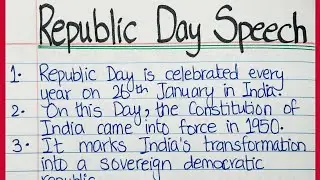 Republic Day Speech
1. Republic Day is celebrated every
year on 26th January in India.
2. On this Day, the Constitution of
India came into force in 1950.
3. It marks India's transformation
into a sovereign democratic
republic